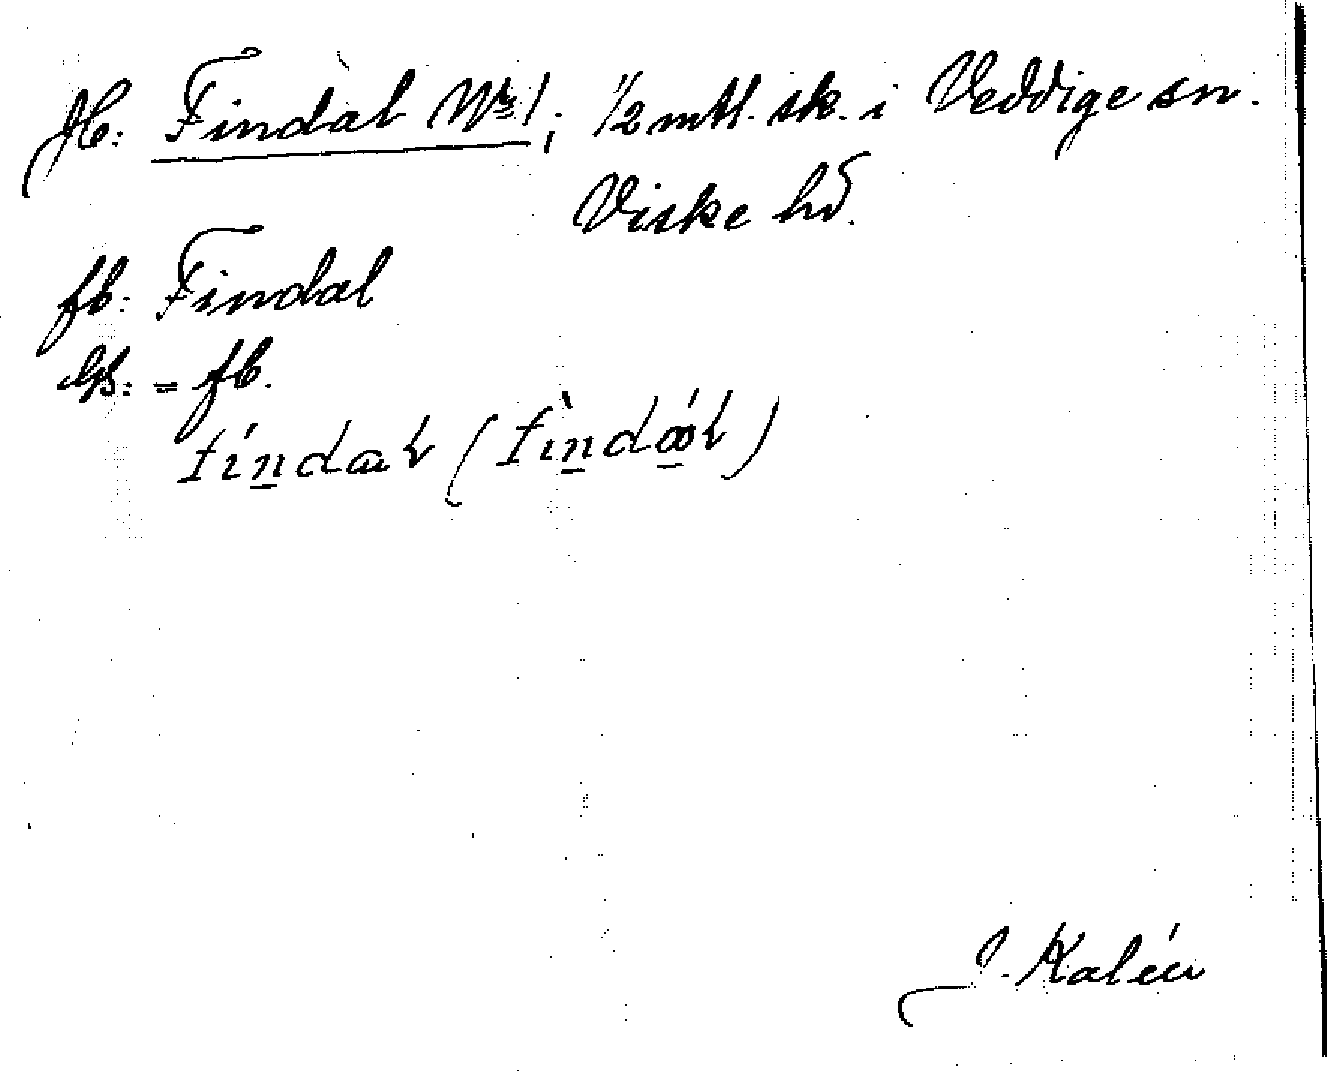 Jb: Findal Nr 1; 1/2 mtl. sk. i Veddige sn.
Viske hd.
fb: Findal
Gs: = fb.
fíndal (fìndál)
J. Kalén